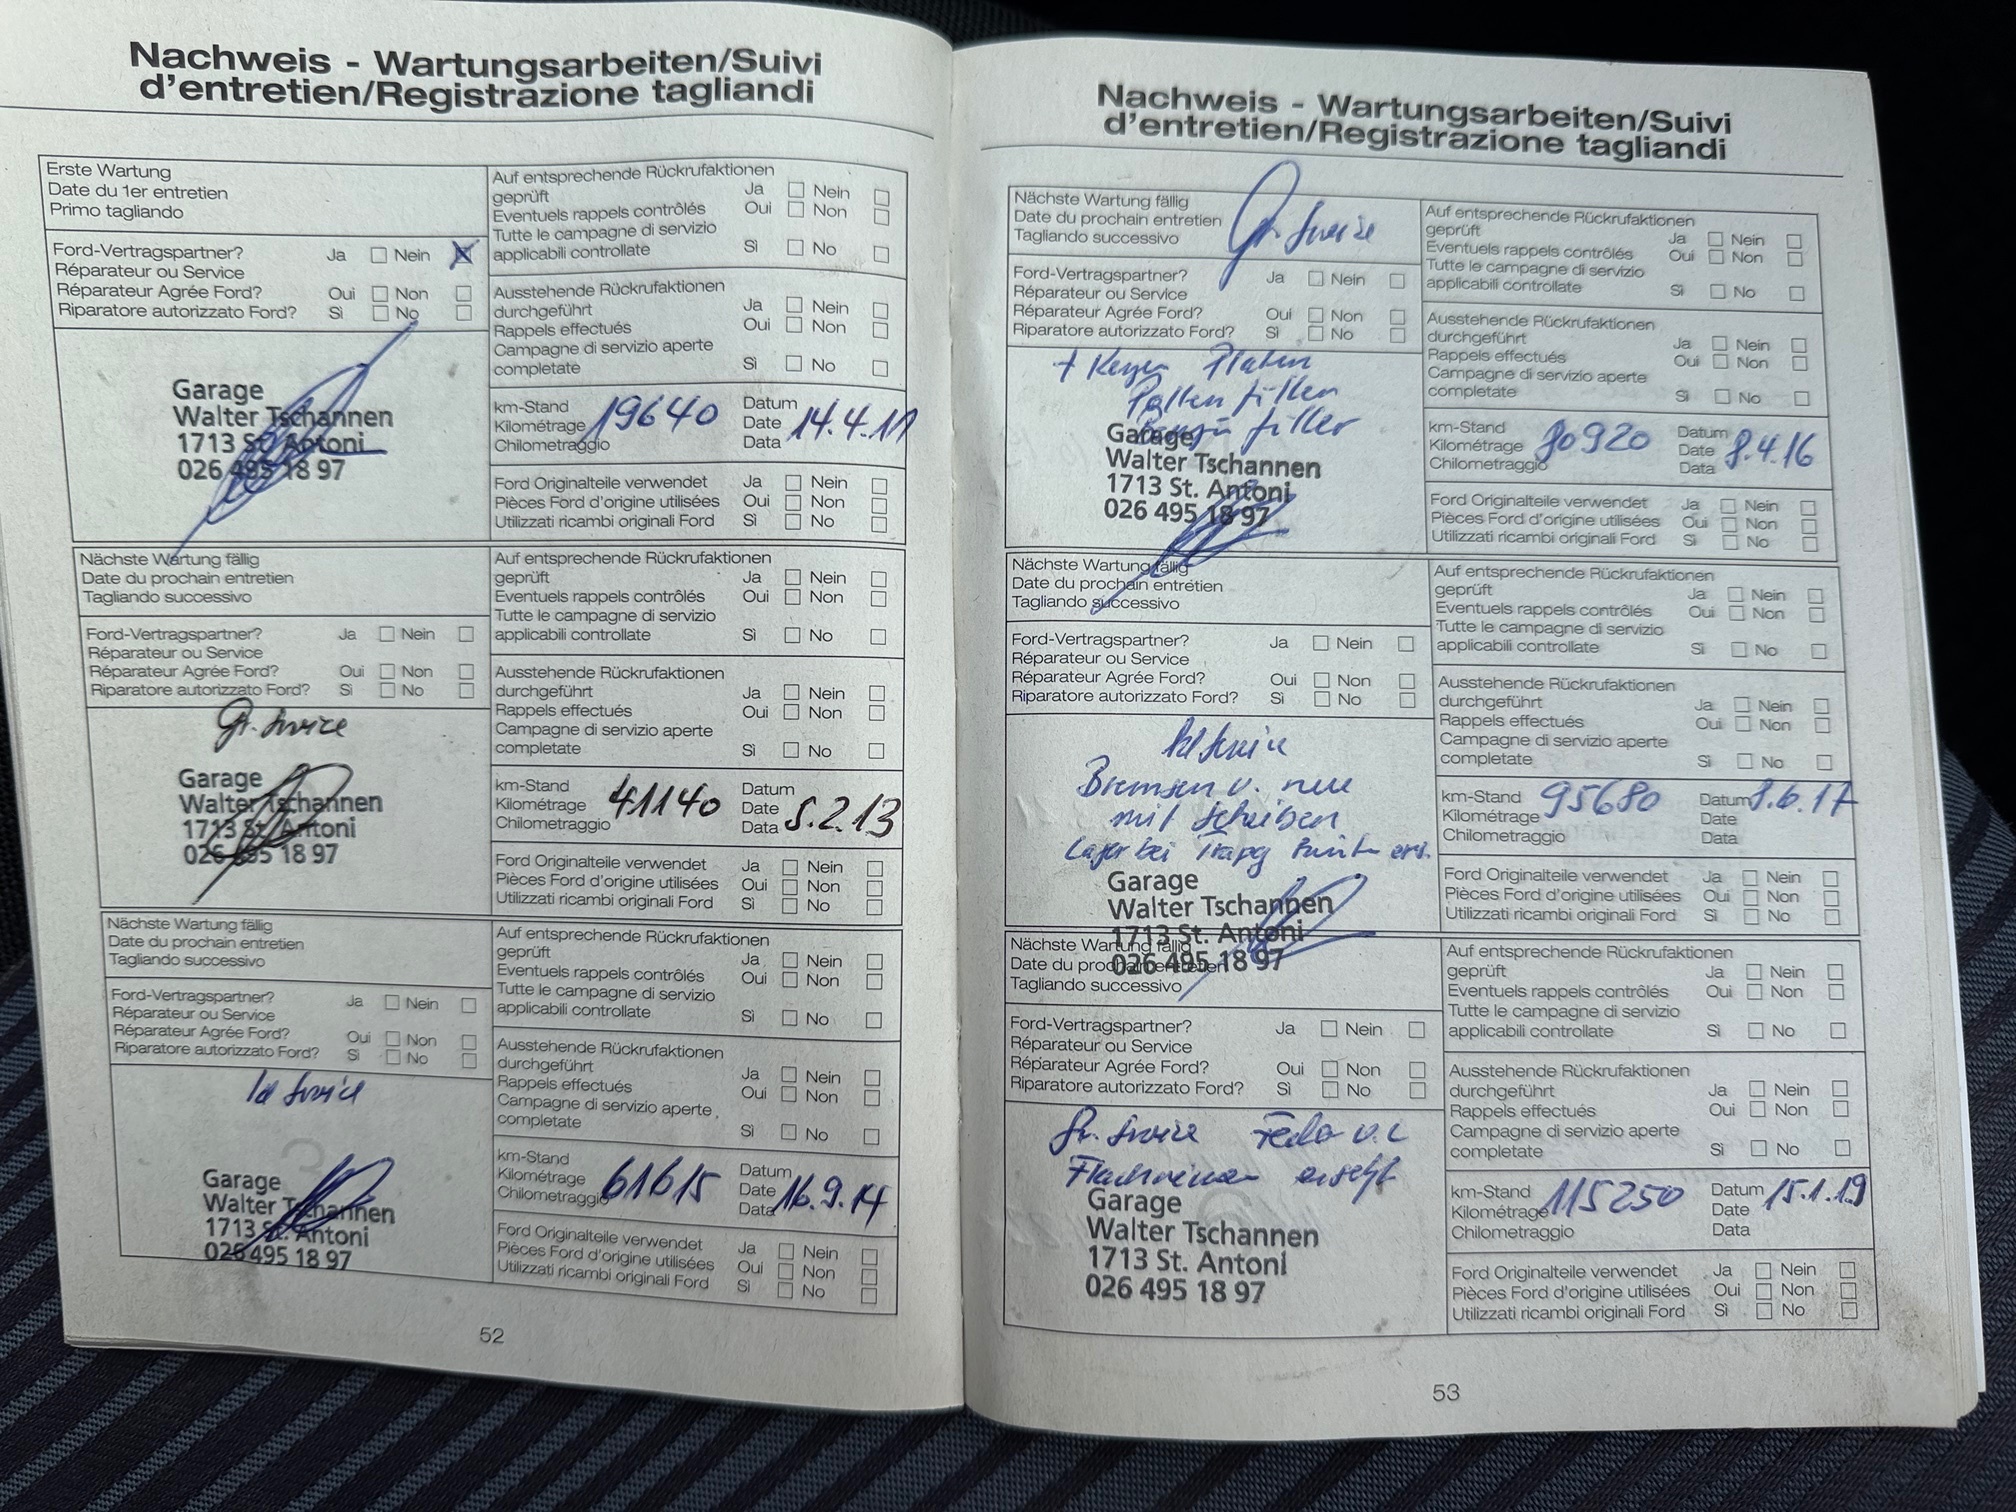 Nachweis - Wartungsarbeiten/Suivi
d'entretien/Registrazione tagliandi
Erste Wartung
Date du 1er entretien
Primo tagliando
Ford-Vertragspartner? Ja Nein
Réparateur ou Service
Réparateur Agrée Ford? Oui Non
Riparatore autorizzato Ford? Sì No
Garage
Walter Tschannen
1713 St. Antoni
026 495 18 97
Auf entsprechende Rückrufaktionen
geprüft Ja Nein
Eventuels rappels contrôlés Oui Non
Tutte le campagne di servizio
applicabili controllate Sì No
Ausstehende Rückrufaktionen
durchgeführt Ja Nein
Rappels effectués Oui Non
Campagne di servizio aperte
completate Sì No
km-Stand Datum
Kilométrage 19640 Date 14.4.11
Chilometraggio Data
Ford Originalteile verwendet Ja Nein
Pièces Ford d'origine utilisées Oui Non
Utilizzati ricambi originali Ford Sì No
Nächste Wartung fällig
Date du prochain entretien
Tagliando successivo
Ford-Vertragspartner? Ja Nein
Réparateur ou Service
Réparateur Agrée Ford? Oui Non
Riparatore autorizzato Ford? Sì No
Gr. Service
Garage
Walter Tschannen
1713 St. Antoni
026 495 18 97
Auf entsprechende Rückrufaktionen
geprüft Ja Nein
Eventuels rappels contrôlés Oui Non
Tutte le campagne di servizio
applicabili controllate Sì No
Ausstehende Rückrufaktionen
durchgeführt Ja Nein
Rappels effectués Oui Non
Campagne di servizio aperte
completate Sì No
km-Stand Datum
Kilométrage 41140 Date
Chilometraggio Data 5.2.13
Ford Originalteile verwendet Ja Nein
Pièces Ford d'origine utilisées Oui Non
Utilizzati ricambi originali Ford Sì No
Nächste Wartung fällig
Date du prochain entretien
Tagliando successivo
Ford-Vertragspartner? Ja Nein
Réparateur ou Service
Réparateur Agrée Ford? Oui Non
Riparatore autorizzato Ford? Sì No
Service
Garage
Walter Tschannen
1713 St. Antoni
026 495 18 97
Auf entsprechende Rückrufaktionen
geprüft Ja Nein
Eventuels rappels contrôlés Oui Non
Tutte le campagne di servizio
applicabili controllate Sì No
Ausstehende Rückrufaktionen
durchgeführt Ja Nein
Rappels effectués Oui Non
Campagne di servizio aperte
completate Sì No
km-Stand Datum
Kilométrage 61615 Date 16.9.14
Chilometraggio Data
Ford Originalteile verwendet Ja Nein
Pièces Ford d'origine utilisées Oui Non
Utilizzati ricambi originali Ford Sì No
52
Nachweis - Wartungsarbeiten/Suivi
d'entretien/Registrazione tagliandi
Nächste Wartung fällig
Date du prochain entretien Gr. Service
Tagliando successivo
Ford-Vertragspartner? Ja Nein
Réparateur ou Service
Réparateur Agrée Ford? Oui Non
Riparatore autorizzato Ford? Sì No
+ Kerzen
Pollenfilter
Benzinfilter
Garage
Walter Tschannen
1713 St. Antoni
026 495 18 97
Auf entsprechende Rückrufaktionen
geprüft Ja Nein
Eventuels rappels contrôlés Oui Non
Tutte le campagne di servizio
applicabili controllate Sì No
Ausstehende Rückrufaktionen
durchgeführt Ja Nein
Rappels effectués Oui Non
Campagne di servizio aperte
completate Sì No
km-Stand Datum
Kilométrage 80920 Date 8.4.16
Chilometraggio Data
Ford Originalteile verwendet Ja Nein
Pièces Ford d'origine utilisées Oui Non
Utilizzati ricambi originali Ford Sì No
Nächste Wartung fällig
Date du prochain entretien
Tagliando successivo
Ford-Vertragspartner? Ja Nein
Réparateur ou Service
Réparateur Agrée Ford? Oui Non
Riparatore autorizzato Ford? Sì No
Service
Bremsen v. neu
mit Scheiben
Lager bei
Garage
Walter Tschannen
1713 St. Antoni
026 495 18 97
Auf entsprechende Rückrufaktionen
geprüft Ja Nein
Eventuels rappels contrôlés Oui Non
Tutte le campagne di servizio
applicabili controllate Sì No
Ausstehende Rückrufaktionen
durchgeführt Ja Nein
Rappels effectués Oui Non
Campagne di servizio aperte
completate Sì No
km-Stand 95680 Datum 8.6.17
Kilométrage Date
Chilometraggio Data
Ford Originalteile verwendet Ja Nein
Pièces Ford d'origine utilisées Oui Non
Utilizzati ricambi originali Ford Sì No
Nächste Wartung fällig
Date du prochain entretien
Tagliando successivo
Ford-Vertragspartner? Ja Nein
Réparateur ou Service
Réparateur Agrée Ford? Oui Non
Riparatore autorizzato Ford? Sì No
Gr. Service
ersetzt
Garage
Walter Tschannen
1713 St. Antoni
026 495 18 97
Auf entsprechende Rückrufaktionen
geprüft Ja Nein
Eventuels rappels contrôlés Oui Non
Tutte le campagne di servizio
applicabili controllate Sì No
Ausstehende Rückrufaktionen
durchgeführt Ja Nein
Rappels effectués Oui Non
Campagne di servizio aperte
completate Sì No
km-Stand Datum 15.1.19
Kilométrage 115250 Date
Chilometraggio Data
Ford Originalteile verwendet Ja Nein
Pièces Ford d'origine utilisées Oui Non
Utilizzati ricambi originali Ford Sì No
53